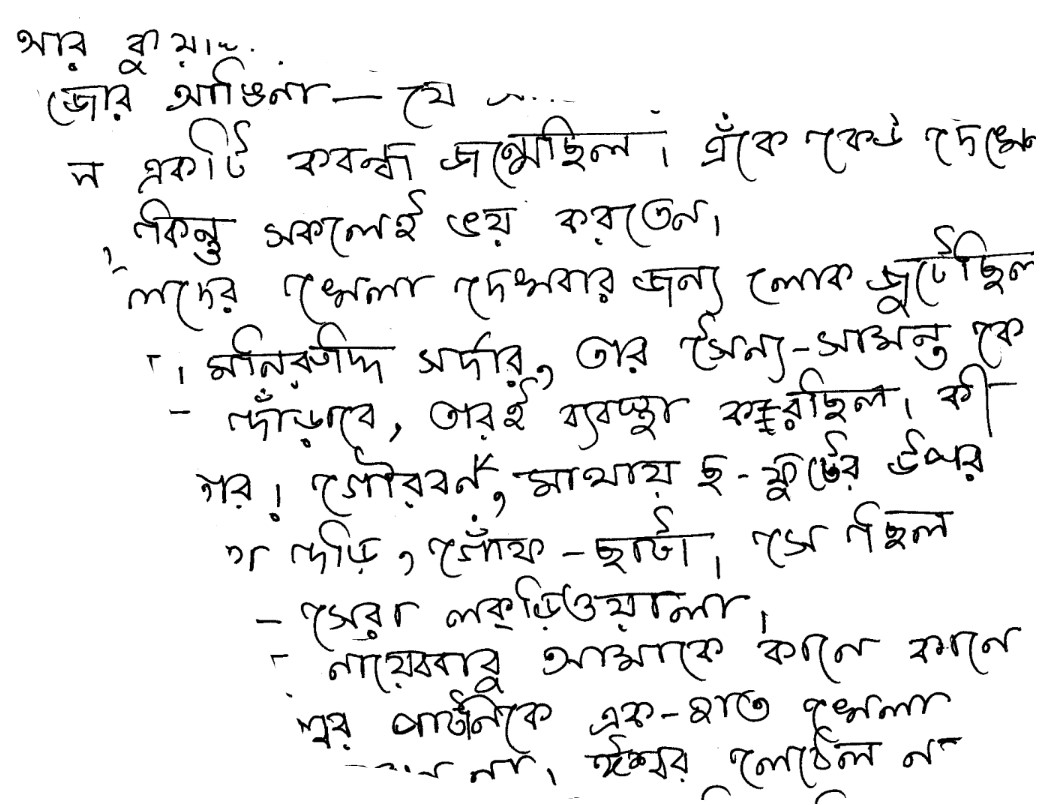 আর
জোর আঙিনা — যে
ন একটি কবন্ধ জন্মেছিল। এঁকে কেউ দেখে
কিন্তু সকলেই ভয় করতেন।
লদের খেলা দেখবার জন্য লোক জুটেছিল
। মনিরুদ্দি সর্দার, তার সৈন্য-সামন্ত কে
দাঁড়াবে, তারই ব্যবস্থা করছিল। কী
গৌরবর্ণ, মাথায় ছ-ফুটের উপর
দাড়ি, গোঁফ-ছাটা। সে ছিল
সেরা লক্‌ড়িওয়ালা।
নায়েববাবু আমাকে কানে কানে
পাটনিকে এক-হাত খেলা
না। ঈশ্বর লেঠেল ন